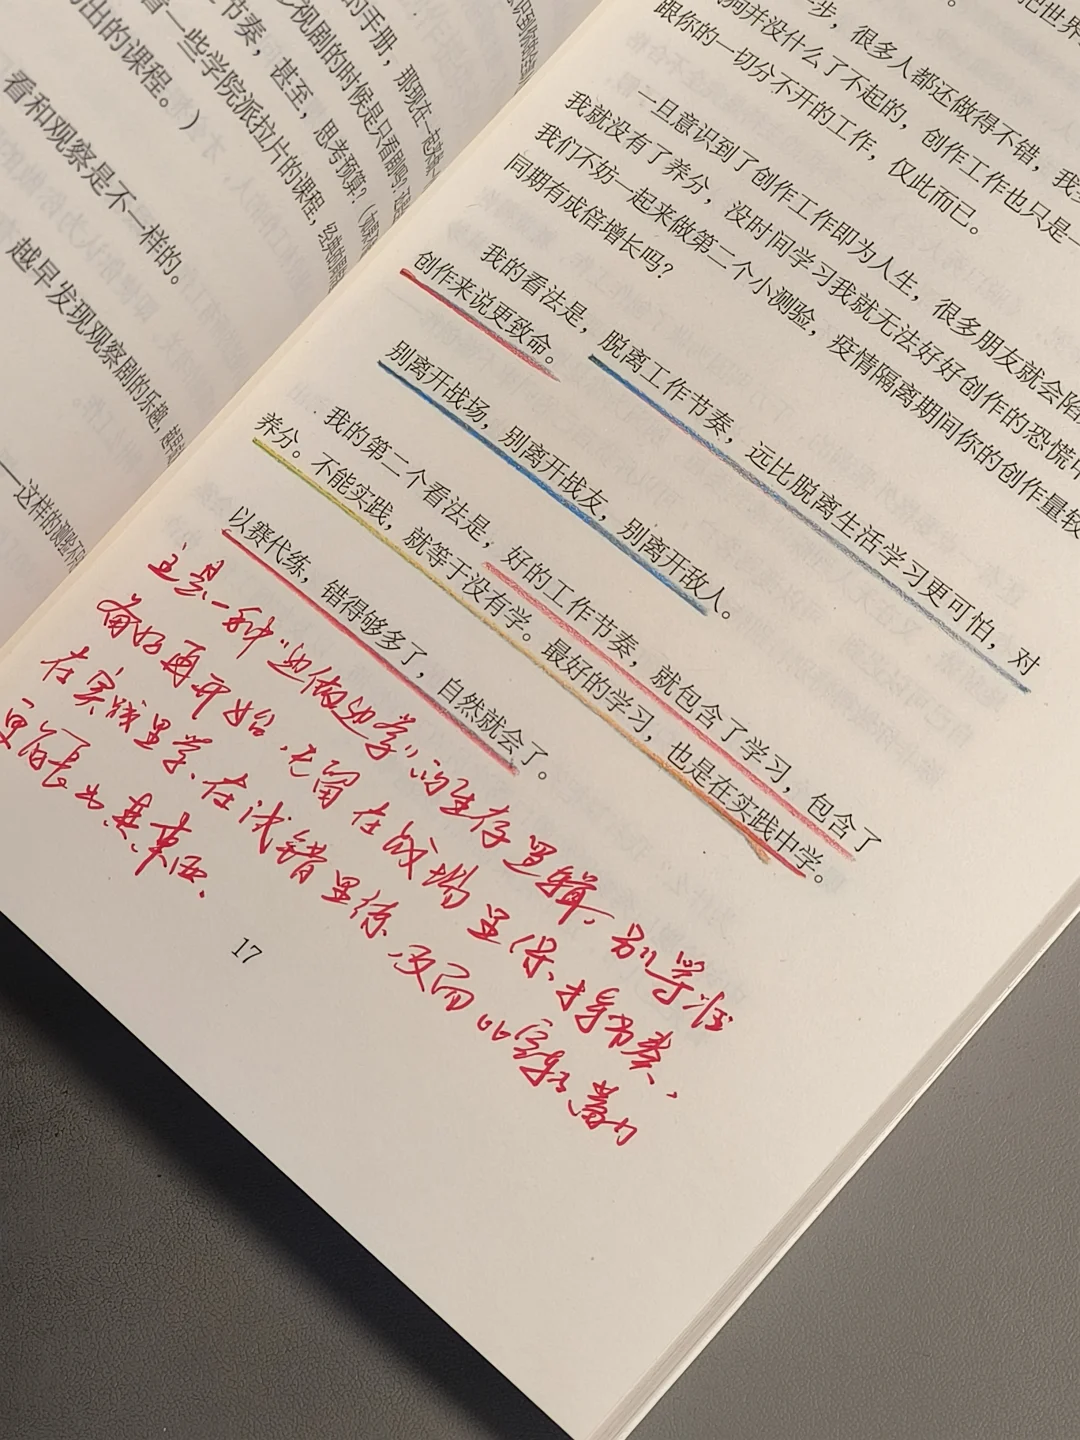 出的课程。）
着一些学院派拉片的课程，
节奏，甚至，思考预算？
视剧的时候是只看剧吗？
的手册，那现在一起
看和观察是不一样的。
越早发现观察剧的乐趣，
——这样的测验不
一步，很多人都还做得不错，我
狗并没什么了不起的，创作工作也只是一
跟你的一切分不开的工作，仅此而已。
一旦意识到了创作工作即为人生，很多朋友就会陷
我就没有了养分，没时间学习我就无法好好创作的恐慌中
我们不妨一起来做第二个小测验，疫情隔离期间你的创作量较
同期有成倍增长吗？
我的看法是，脱离工作节奏，远比脱离生活学习更可怕，对
创作来说更致命。
别离开战场，别离开战友，别离开敌人。
我的第二个看法是，好的工作节奏，就包含了学习，包含了
养分。不能实践，就等于没有学。最好的学习，也是在实践中学。
以赛代练，错得够多了，自然就会了。
这是一种“边做边学”的生存逻辑，别等准
备好再开始，先留在战场里保持节奏，
在实践里学、在试错里练，反而
更能长出真东西。
17